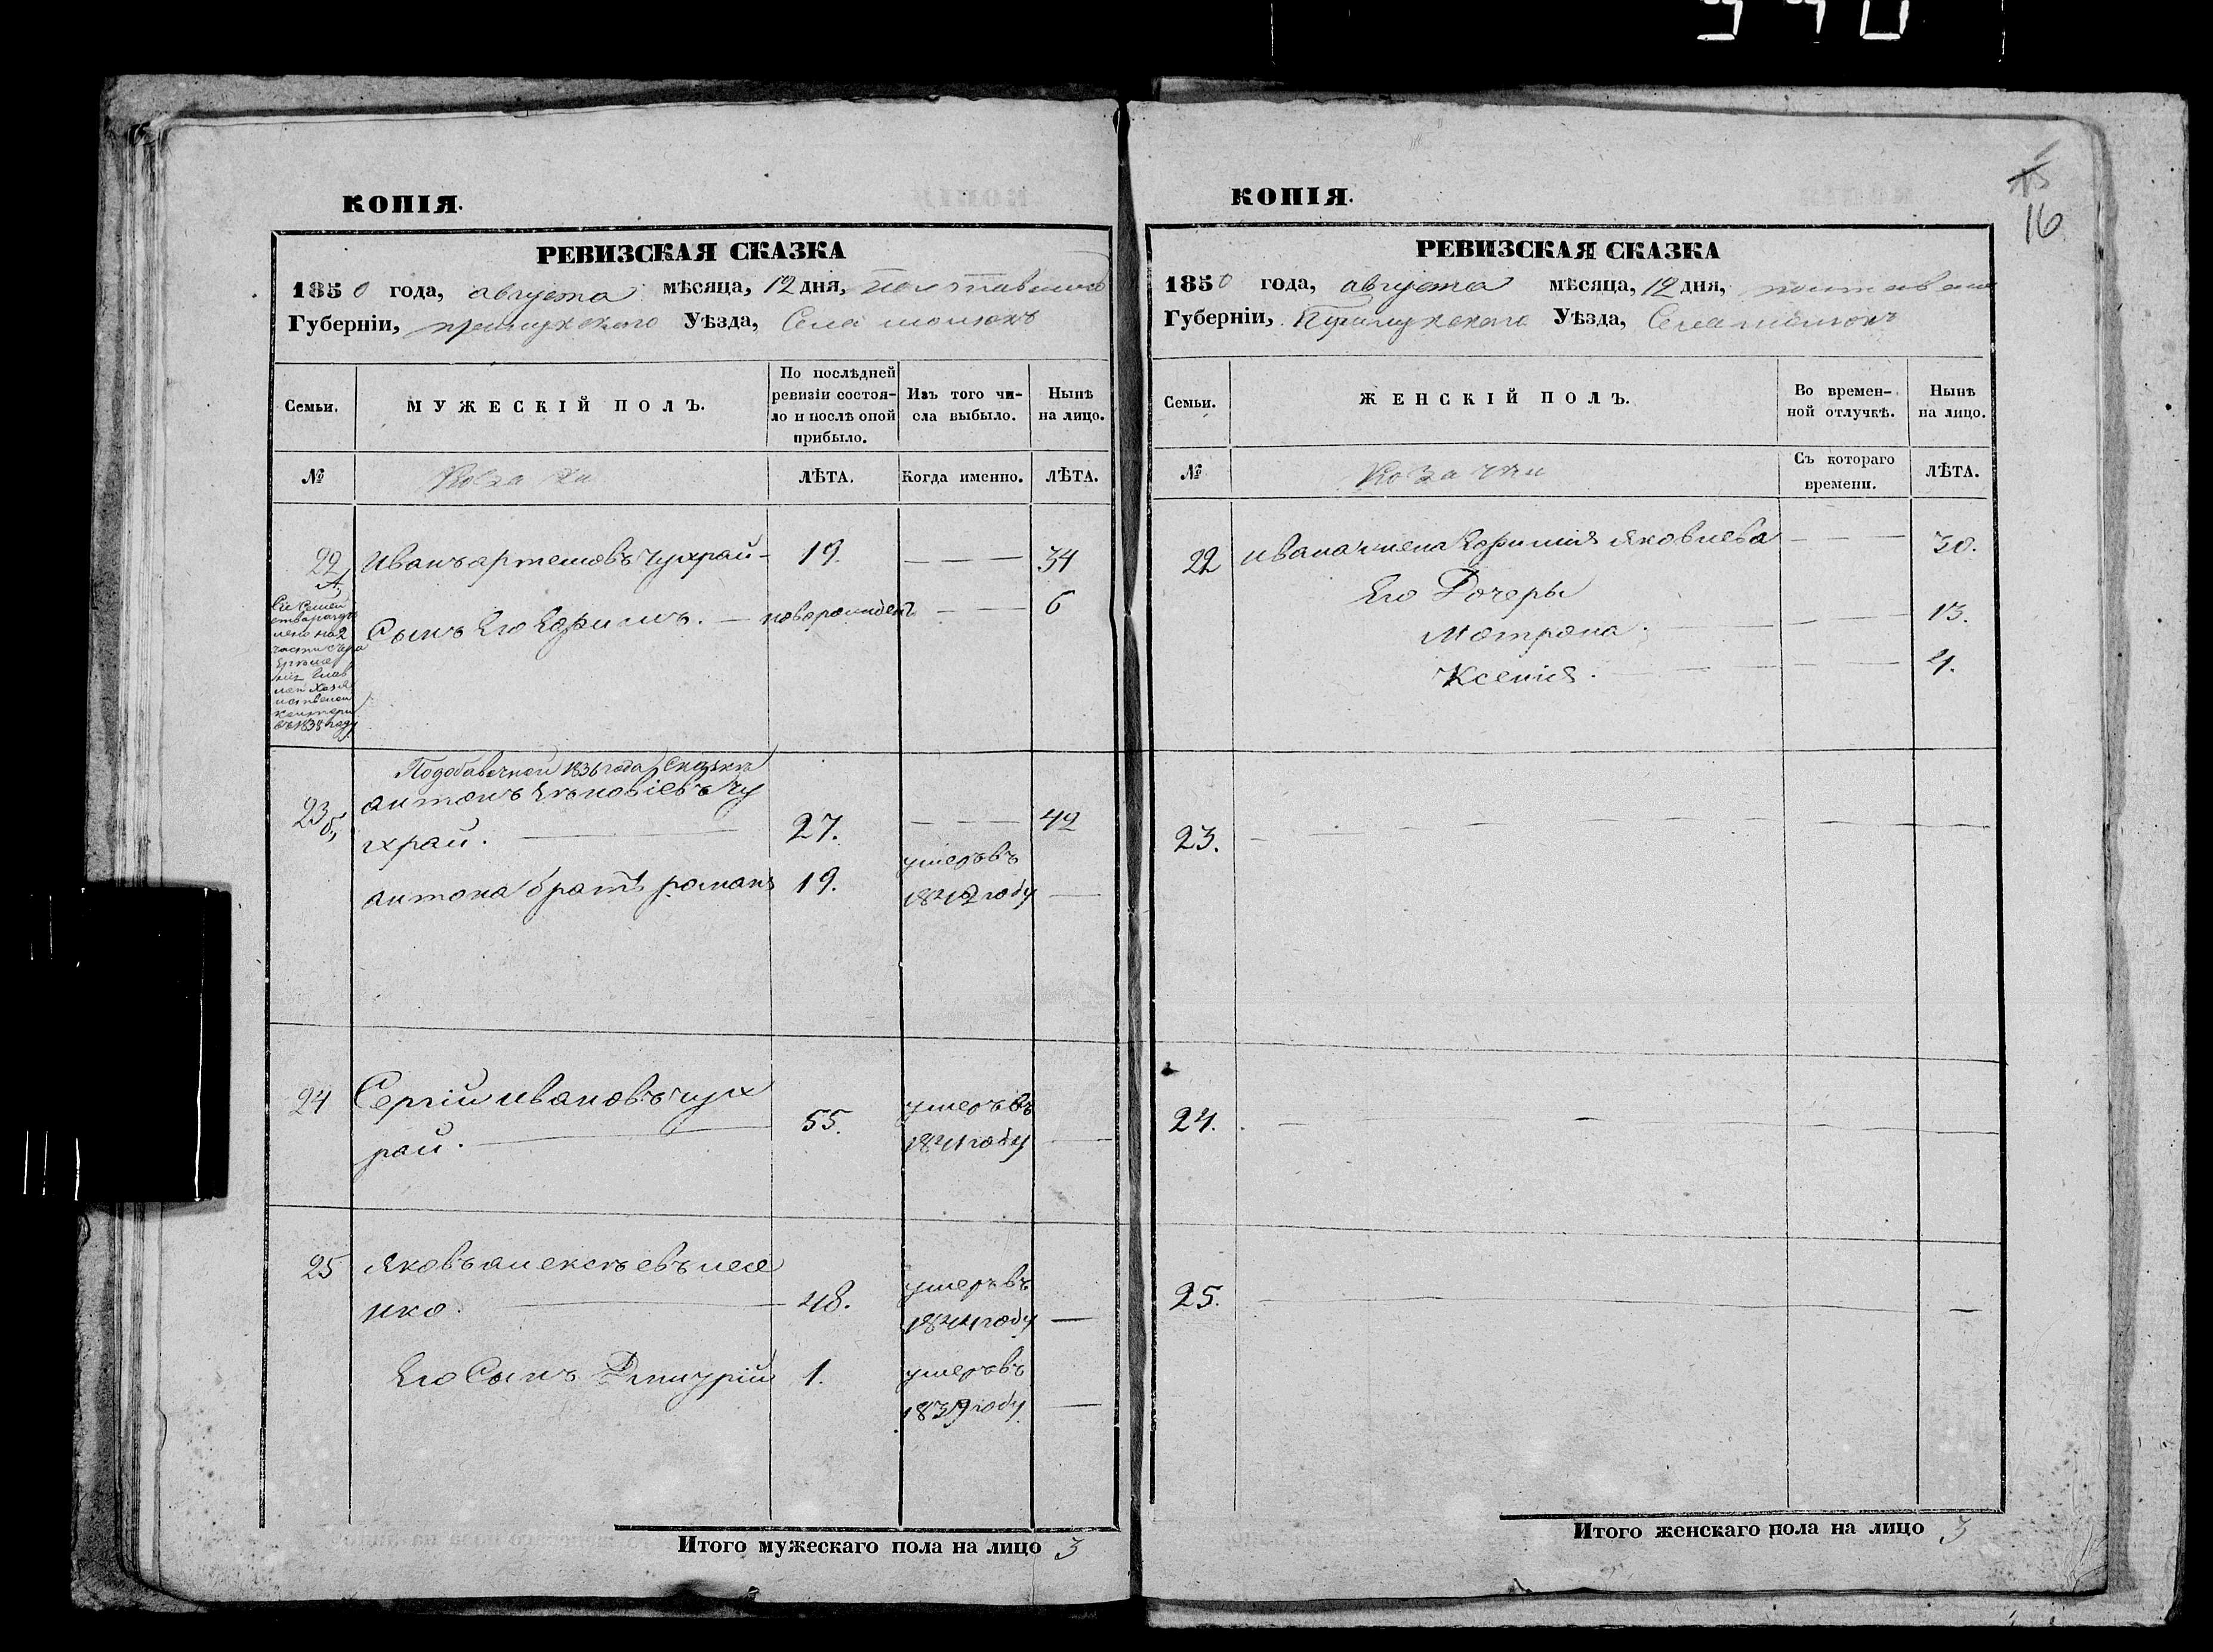 КОПІЯ.
РЕВИЗСКАЯ СКАЗКА
1850 года, августа мѣсяца, 12 дня, полтавской
Губерніи, прилукского Уѣзда, Села
Семьи.
МУЖЕСКІЙ ПОЛЪ.
По послѣдней
ревизіи состоя-
ло и послѣ оной
прибыло.
Изъ того чи-
сла выбыло.
Нынѣ
на лицо.
№
Козаки
ЛѢТА.
Когда именно.
ЛѢТА.
22 Иванъ артемовъ чухрай - 19. — — — 34
А,
Сынъ Его Ефимъ. — новорожденъ — — 6
Сіе Семей
части
въ 1838 году
Подобавочной 1836 года Сказки
23 антонъ чу
б,
храй. — 27. — — — 42
антона братъ романъ 19. умеръ въ
1842 году —
24 Сергій ивановъ чух
рай. — 55. умеръ въ
1841 году —
25 Яковъ алексѣевъ
нко. — 48. умеръ въ
1844 году —
Его Сынъ Дмитрій 1. умеръ въ
1839 году —
Итого мужескаго пола на лицо 3
15
16
КОПІЯ.
РЕВИЗСКАЯ СКАЗКА
1850 года, августа мѣсяца, 12 дня, полтавской
Губерніи, Прилукского Уѣзда, Села
Семьи.
ЖЕНСКІЙ ПОЛЪ.
Во времен-
ной отлучкѣ.
Нынѣ
на лицо.
№
Козачки
Съ котораго
времени.
ЛѢТА.
22 ивана жена Ефимія Яковлева — — — 30.
Его Дочеры
Мотрона. — — — 13.
Ксенія. — — — 4.
23. —
24. —
25. —
Итого женскаго пола на лицо 3